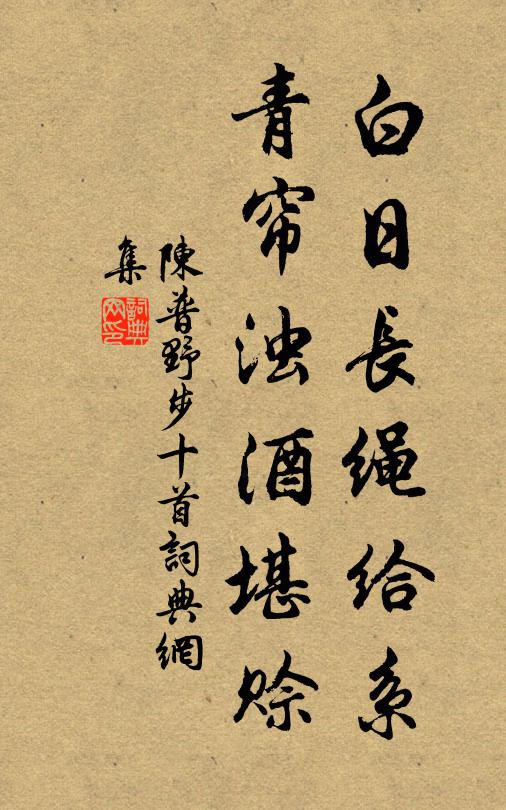 白日長绳给系
青帘浊酒堪赊
陳普野步十首詞典網
集
詞典